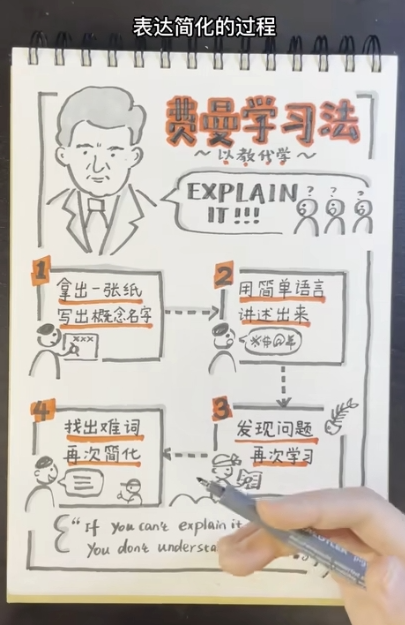 表达简化的过程
费曼学习法
～以教代学～
EXPLAIN
IT!!!
? ? ?
1
拿出一张纸
写出概念名字
×××
2
用简单语言
讲述出来
3
发现问题
再次学习
4
找出难词
再次简化
"If you can't explain it
You don't